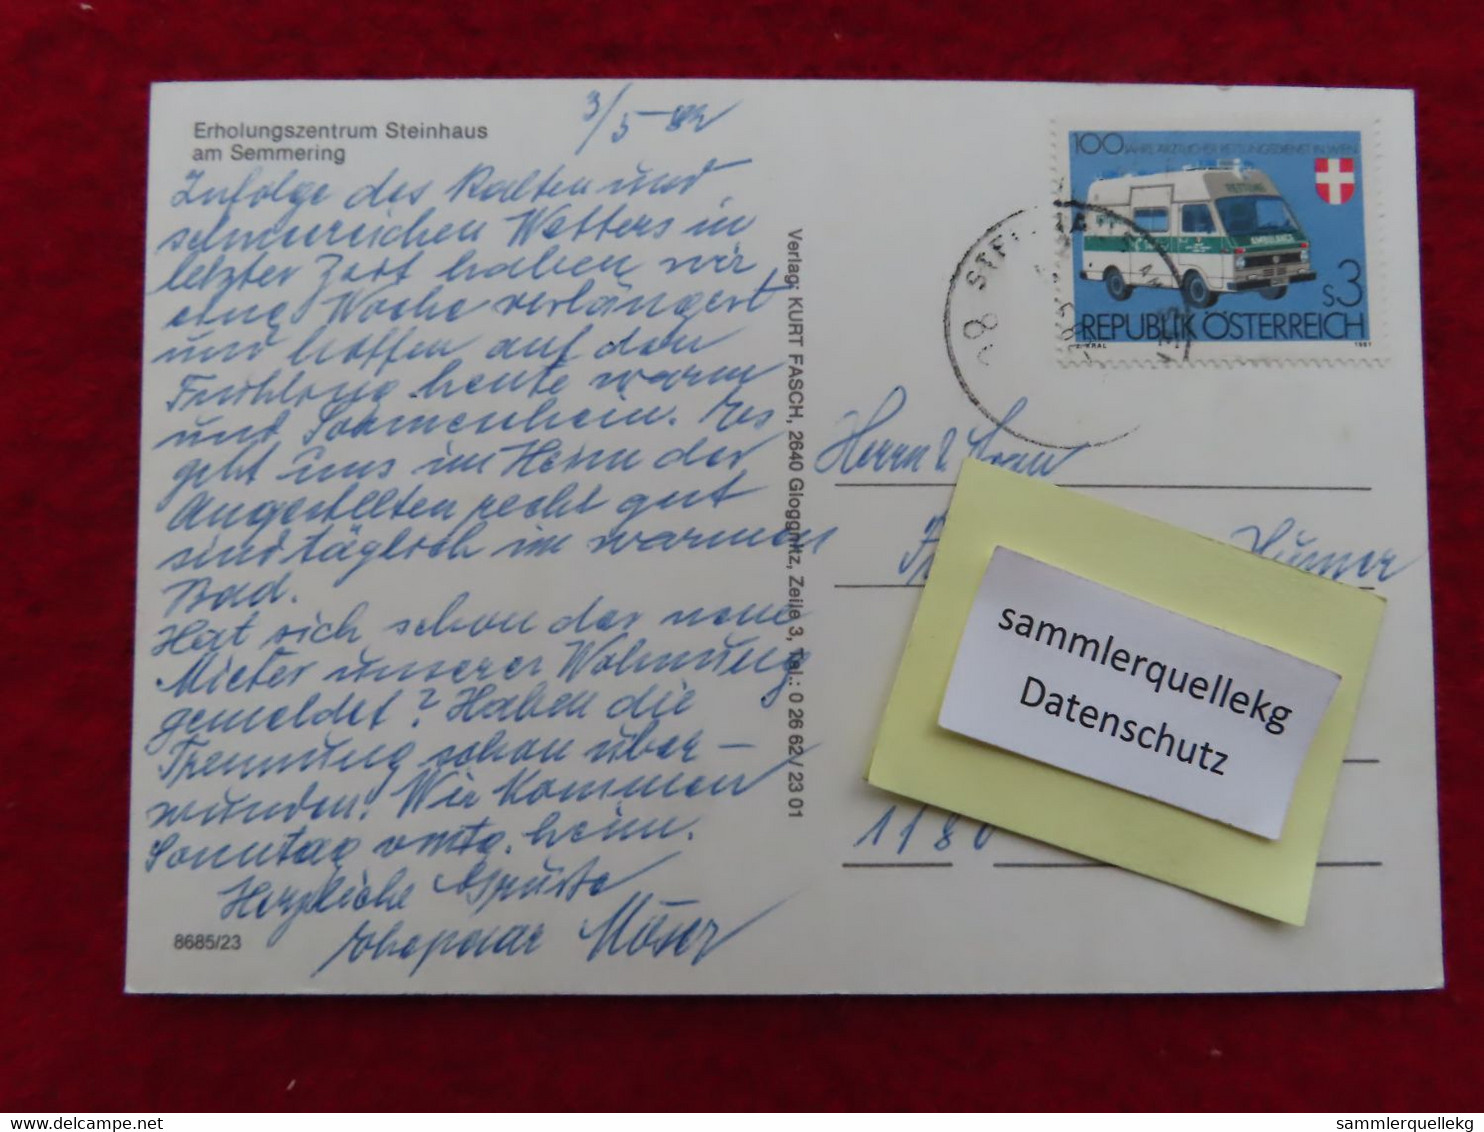 Erholungszentrum Steinhaus
am Semmering
3/5-82
Infolge des kalten und
schneereichen Wetters in
letzter Zeit haben wir
eine Woche verlängert
und hoffen auf den
Frühling heute warm
und Sonnenschein. Es
geht uns im Heim der
Angestellten recht gut
sind täglich im warmen
Bad.
Hat sich schon der neue
Mieter unserer Wohnung
gemeldet? Haben die
Trennung schon über-
wunden! Wir kommen
Sonntag vmtg. heim.
Herzliche Grüsse
Ehepaar Möser
8685/23
Verlag: KURT FASCH, 2640 Gloggnitz, Zeile 3, Tel.: 0 26 62 / 23 01
100 JAHRE ÄRZTLICHER RETTUNGSDIENST IN WIEN
RETTUNG
AMBULANCE
S3
REPUBLIK ÖSTERREICH
1981
Herrn & Frau
Hümer
1180
sammlerquellekg
Datenschutz
delcampe.net
sammlerquellekg